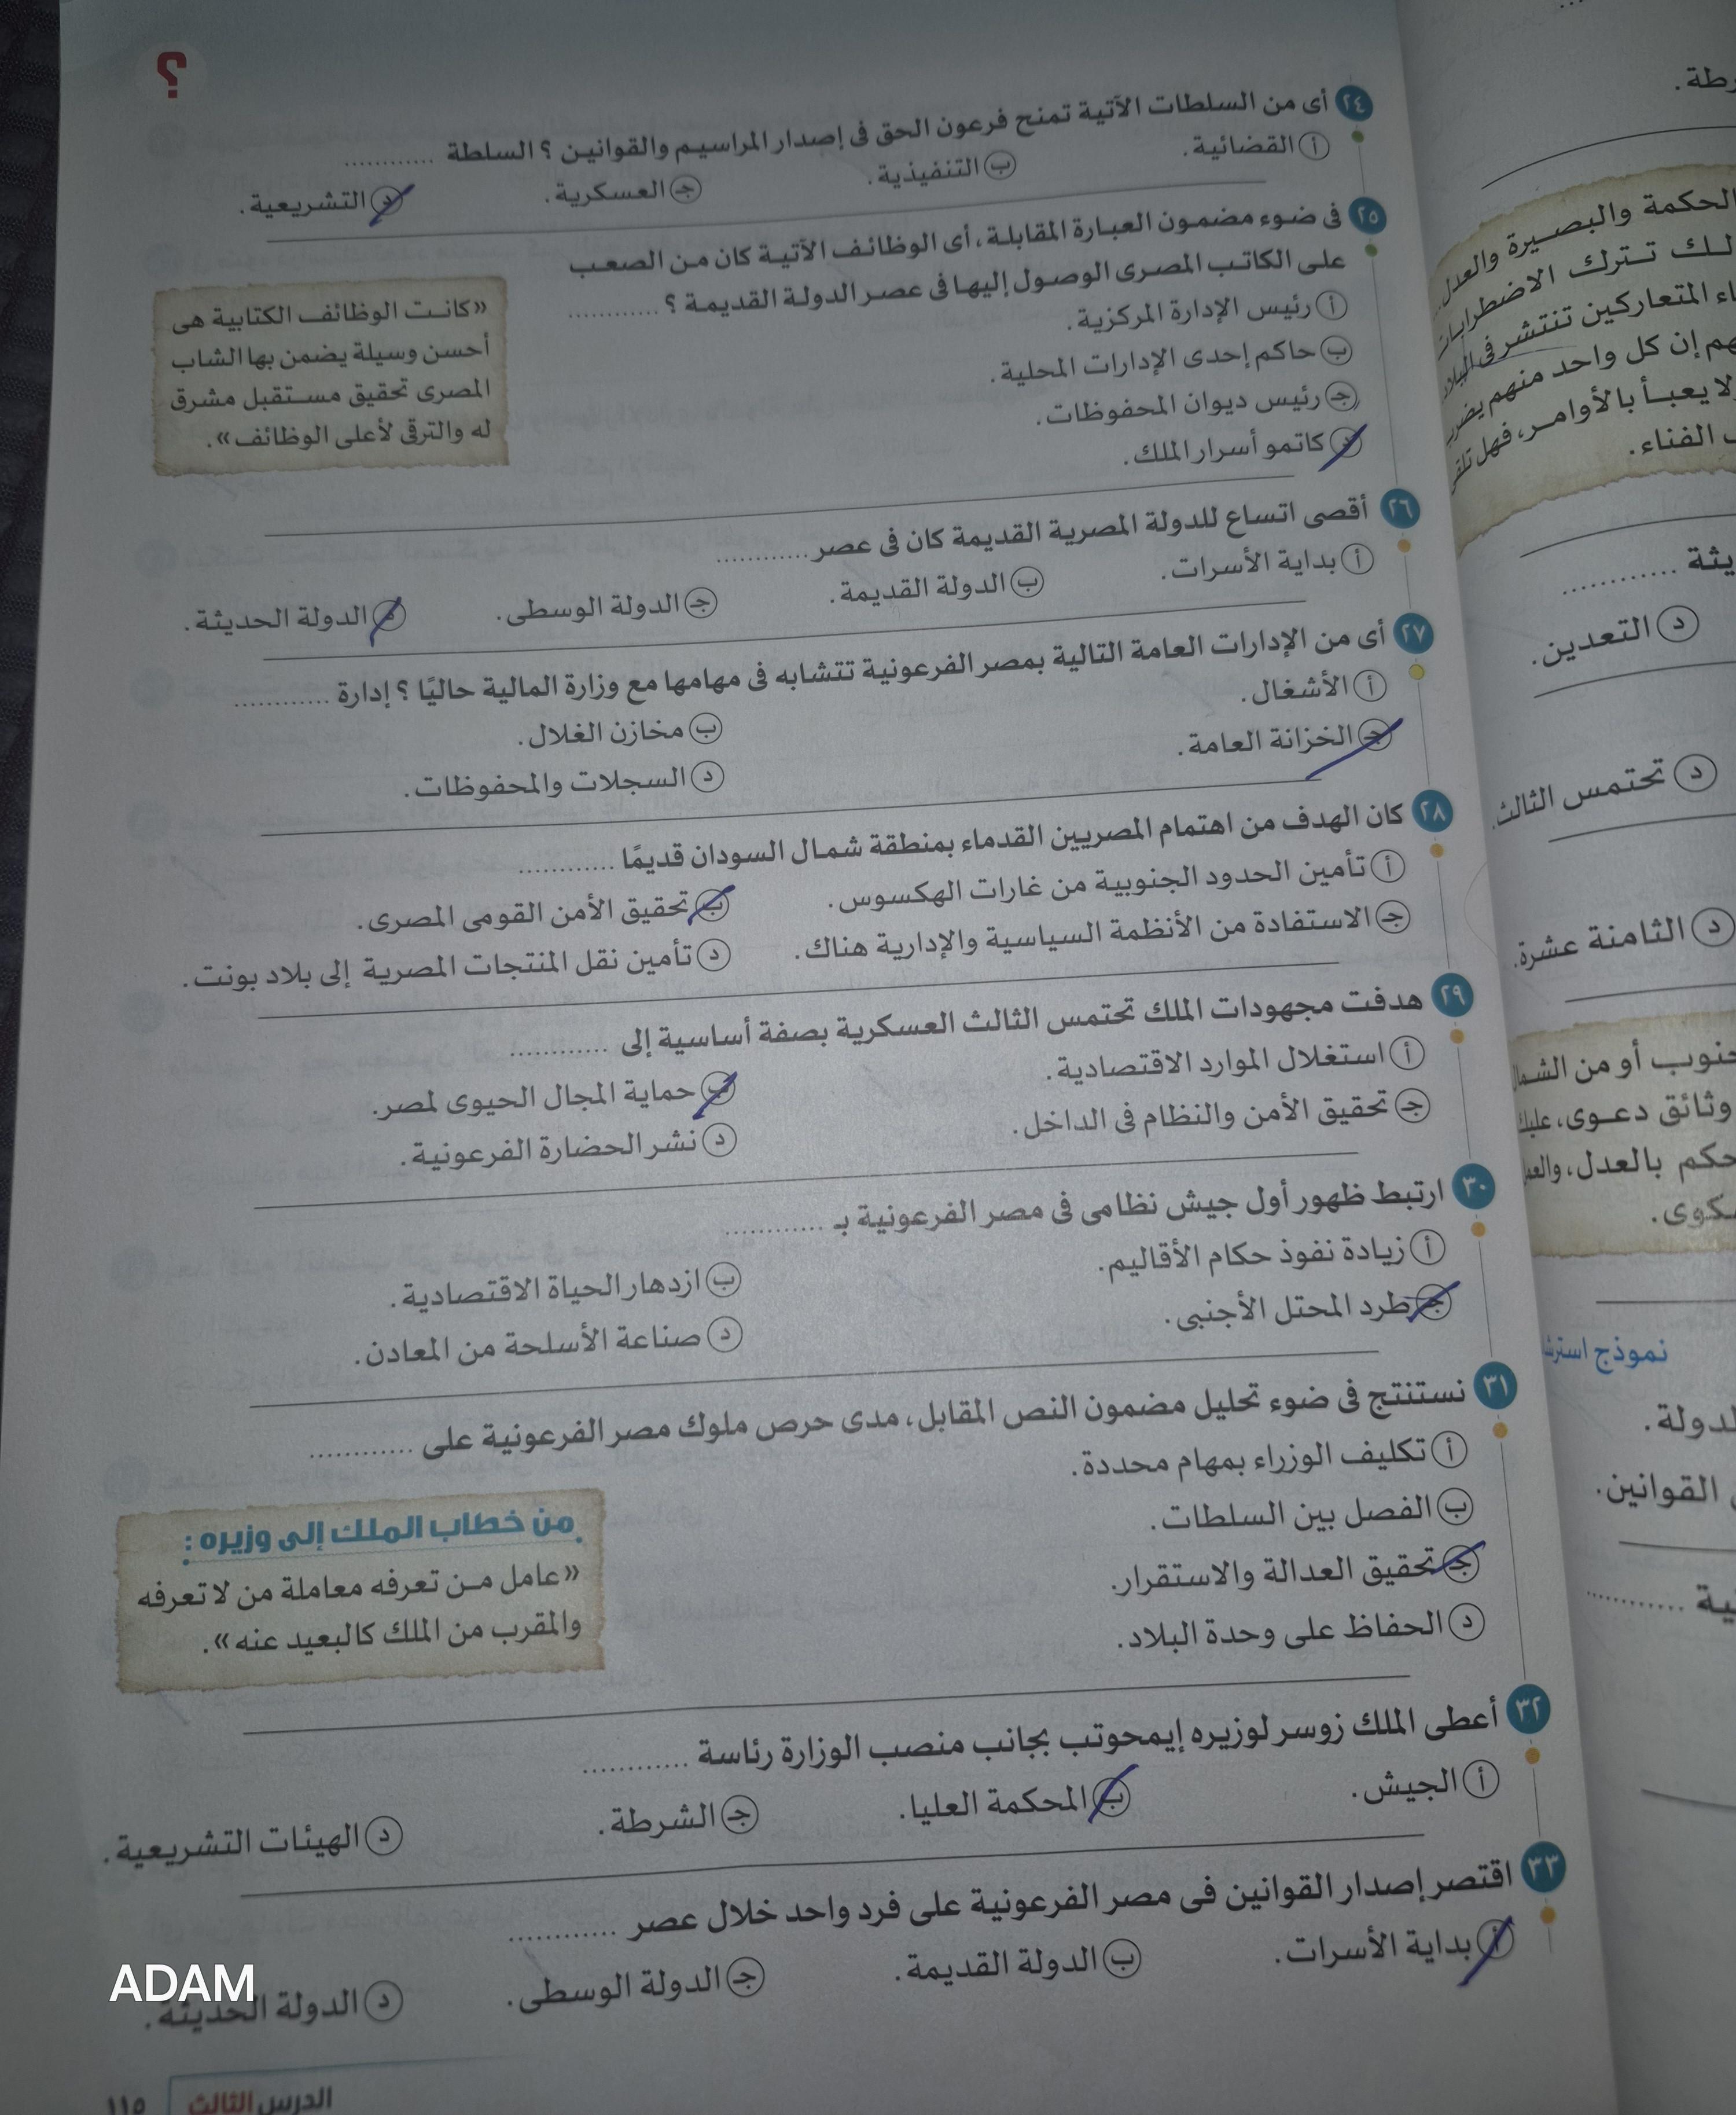 ؟
٢٤ أى من السلطات الآتية تمنح فرعون الحق فى إصدار المراسيم والقوانين ؟ السلطة ............
أ القضائية.
ب التنفيذية.
ج العسكرية.
د التشريعية.
٢٥ فى ضوء مضمون العبارة المقابلة، أى الوظائف الآتية كان من الصعب
على الكاتب المصرى الوصول إليها فى عصر الدولة القديمة ؟ ............
أ رئيس الإدارة المركزية.
ب حاكم إحدى الإدارات المحلية.
ج رئيس ديوان المحفوظات.
د كاتمو أسرار الملك.
«كانت الوظائف الكتابية هى
أحسن وسيلة يضمن بها الشاب
المصرى تحقيق مستقبل مشرق
له والترقى لأعلى الوظائف».
٢٦ أقصى اتساع للدولة المصرية القديمة كان فى عصر ............
أ بداية الأسرات.
ب الدولة القديمة.
ج الدولة الوسطى.
د الدولة الحديثة.
٢٧ أى من الإدارات العامة التالية بمصر الفرعونية تتشابه فى مهامها مع وزارة المالية حاليًا ؟ إدارة ............
أ الأشغال.
ب مخازن الغلال.
ج الخزانة العامة.
د السجلات والمحفوظات.
٢٨ كان الهدف من اهتمام المصريين القدماء بمنطقة شمال السودان قديمًا ............
أ تأمين الحدود الجنوبية من غارات الهكسوس.
ب تحقيق الأمن القومى المصرى.
ج الاستفادة من الأنظمة السياسية والإدارية هناك.
د تأمين نقل المنتجات المصرية إلى بلاد بونت.
٢٩ هدفت مجهودات الملك تحتمس الثالث العسكرية بصفة أساسية إلى ............
أ استغلال الموارد الاقتصادية.
ب حماية المجال الحيوى لمصر.
ج تحقيق الأمن والنظام فى الداخل.
د نشر الحضارة الفرعونية.
٣٠ ارتبط ظهور أول جيش نظامى فى مصر الفرعونية بـ ............
أ زيادة نفوذ حكام الأقاليم.
ب ازدهار الحياة الاقتصادية.
ج طرد المحتل الأجنبى.
د صناعة الأسلحة من المعادن.
٣١ نستنتج فى ضوء تحليل مضمون النص المقابل، مدى حرص ملوك مصر الفرعونية على ............
أ تكليف الوزراء بمهام محددة.
ب الفصل بين السلطات.
ج تحقيق العدالة والاستقرار.
د الحفاظ على وحدة البلاد.
من خطاب الملك إلى وزيره :
«عامل من تعرفه معاملة من لا تعرفه
والمقرب من الملك كالبعيد عنه».
٣٢ أعطى الملك زوسر لوزيره إيمحوتب بجانب منصب الوزارة رئاسة ............
أ الجيش.
ب المحكمة العليا.
ج الشرطة.
د الهيئات التشريعية.
٣٣ اقتصر إصدار القوانين فى مصر الفرعونية على فرد واحد خلال عصر ............
أ بداية الأسرات.
ب الدولة القديمة.
ج الدولة الوسطى.
د الدولة الحديثة.
ADAM
الدرس الثالث
١١٥
الحكمة والبصيرة والعدل
تترك الاضطرابات
المتعاركين تنتشر فى البلاد
إن كل واحد منهم
يعبأ بالأوامر، فهل
الفناء.
............
د التعدين.
د تحتمس الثالث.
د الثامنة عشرة.
أو من الشمال
وثائق دعوى، عليك
بالعدل،
نموذج
القوانين.
............